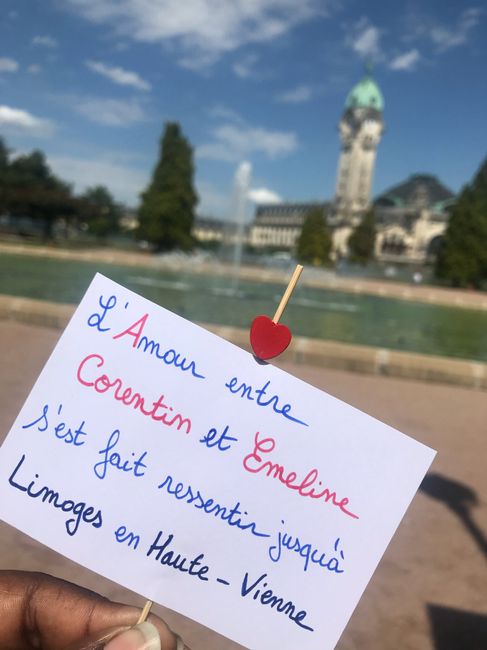 L'Amour entre
Corentin et Emeline
s'est fait ressentir jusqu'à
Limoges en Haute-Vienne